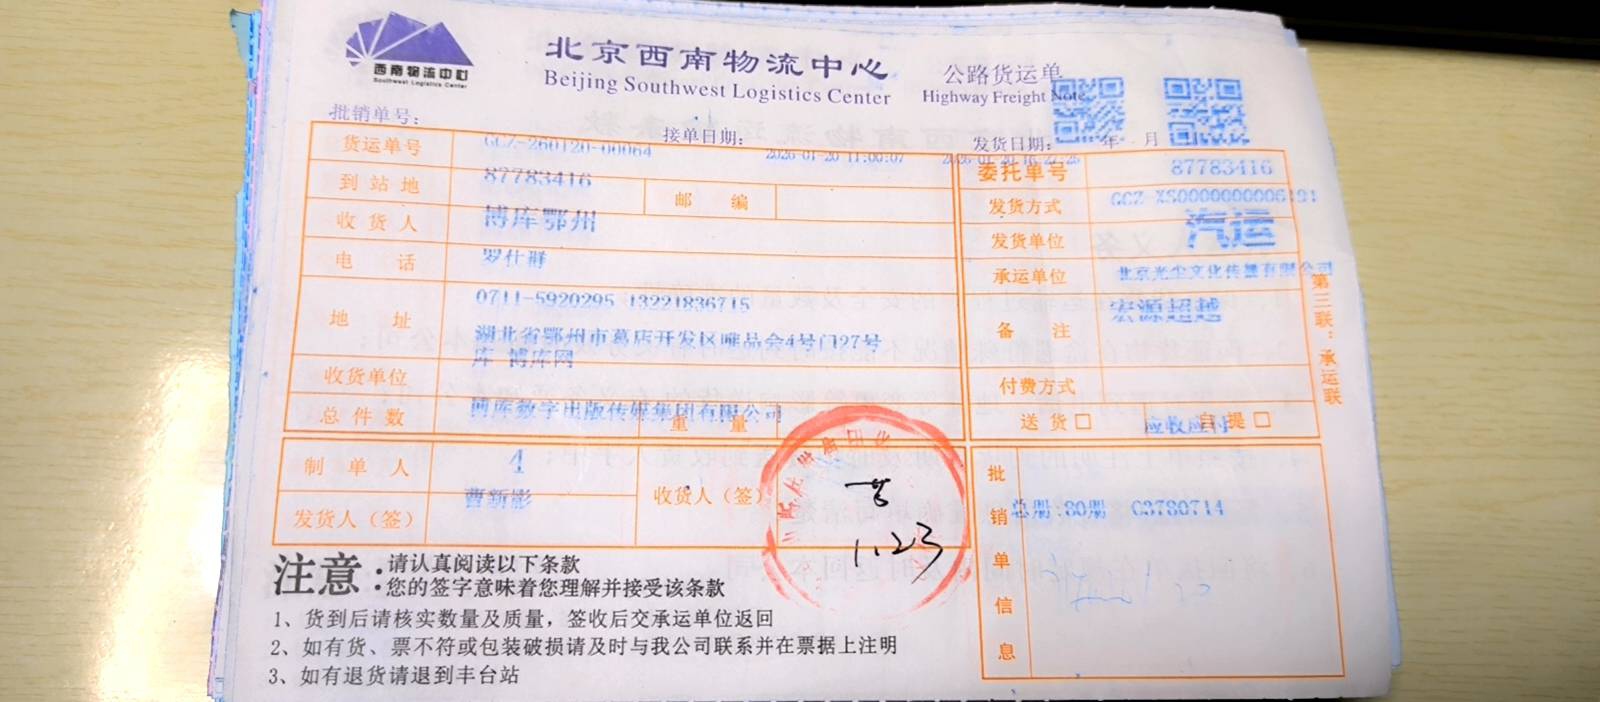 西南物流中心
Southwest Logistics Center
北京西南物流中心
Beijing Southwest Logistics Center
公路货运单
Highway Freight Note
批销单号：
接单日期：
2026-01-20 11:00:07
发货日期：
年 月
2026-01-20 16:27:26
货运单号
GCZ-260120-00064
委托单号
87783416
到站地
87783416
邮 编
发货方式
收货人
博库鄂州
发货单位
汽运
电 话
罗仕群
承运单位
北京光尘文化传播有限公司
地 址
0711-5920295 13221836715
湖北省鄂州市葛店开发区唯品会4号门27号
库 博库网
备 注
宏源超越
收货单位
付费方式
总件数
博库数字出版传媒集团有限公司
重 量
送 货 □
应收应付
自 提 □
制单人
4
收货人（签）
1.23
发货人（签）
曹新影
批销单信息
总册:80册 C3780714
第三联：承运联
注意：
请认真阅读以下条款
您的签字意味着您理解并接受该条款
1、货到后请核实数量及质量，签收后交承运单位返回
2、如有货、票不符或包装破损请及时与我公司联系并在票据上注明
3、如有退货请退到丰台站